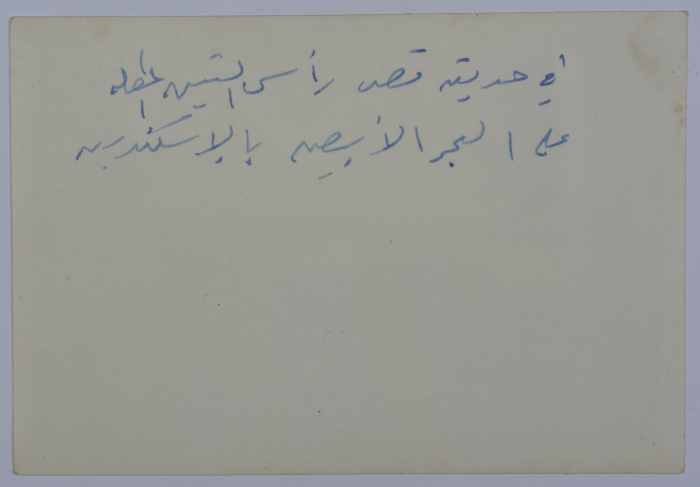 في حديقة قصر رأس التين المطلة
على البحر الأبيض بالإسكندرية